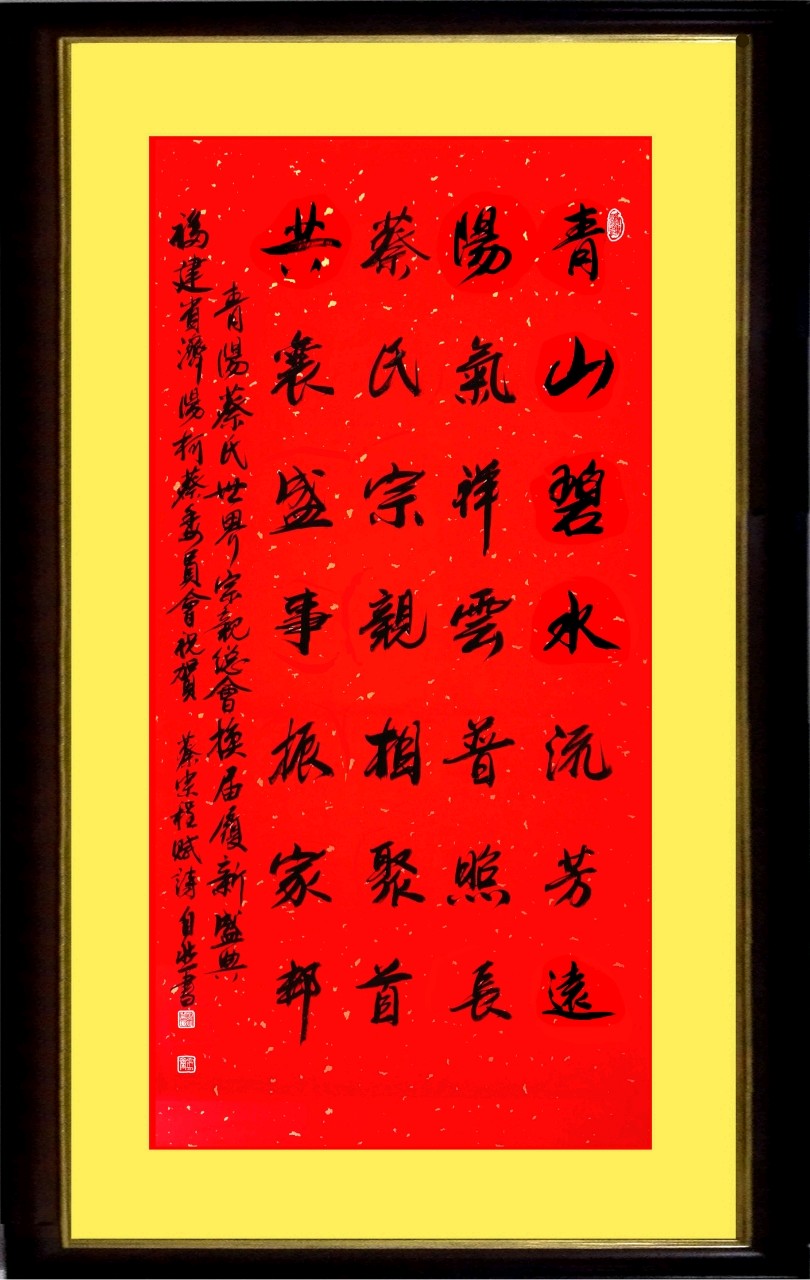 青山碧水流芳遠
陽氣祥雲普照長
蔡氏宗親相聚首
共襄盛事振家邦
青陽蔡氏世界宗親總會換届履新盛典
福建省濟陽柯蔡委員會祝賀 蔡宗程賦詩自然書